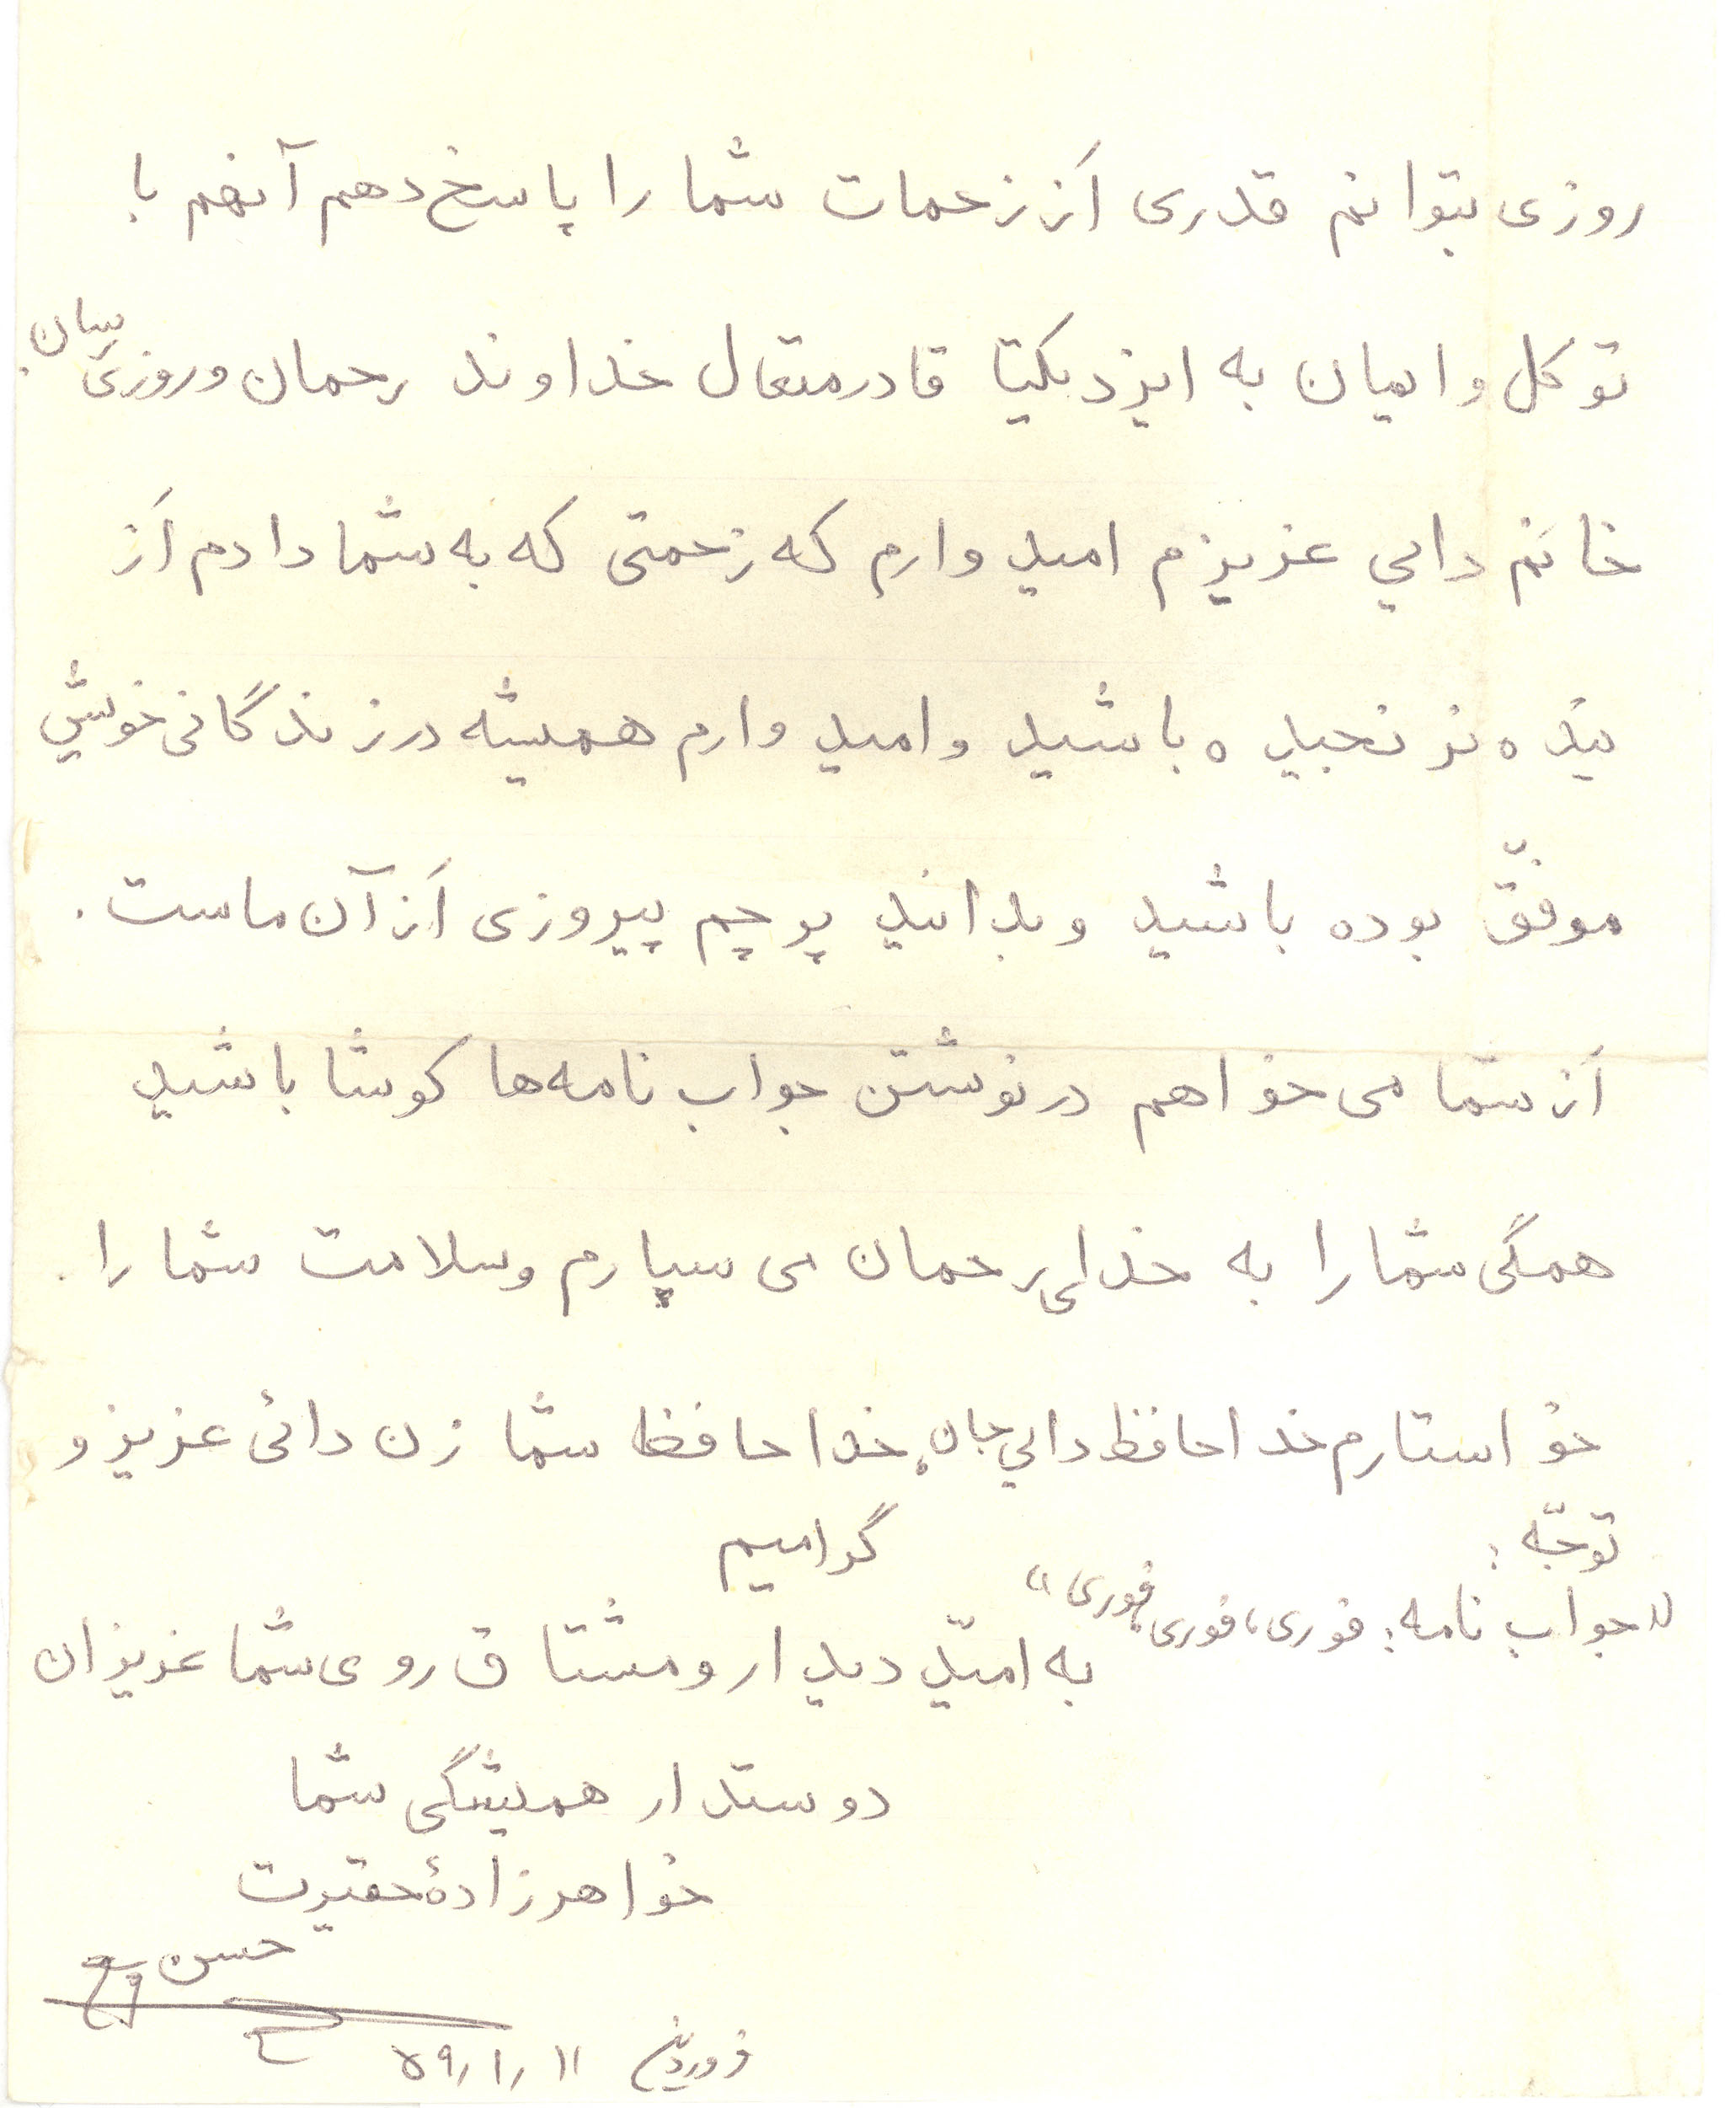 روزی بتوانم قدری اَز زحمات شما را پاسخ دهم آنهم با
توکل و ایمان به ایزد یکتا قادر متعال خداوند رحمان و روزی‌رسان.
خانم دایی عزیزم امید وارم که زحمتی که به شما دادم اَز
بنده نرنجیده باشید و امید وارم همیشه در زندگانی خویش
موفّق بوده باشید و بدانید پرچم پیروزی اَز آن ماست .
اَز شما می خواهم در نوشتن جواب نامه ها کوشا باشید
همگی شما را به خدای رحمان می سپارم و سلامت شما را .
خواستارم خداحافظ دایی جان، خداحافظ شما زن دائی عزیز و
گرامیم
توجّه :
«جواب نامه: فوری، فوری، فوری»
به امیّد دیدار و مشتاق روی شما عزیزان
دوستدار همیشگی شما
خواهرزادهٔ حقیرت
حسن
فروردین ۵۹/۱/۱۱